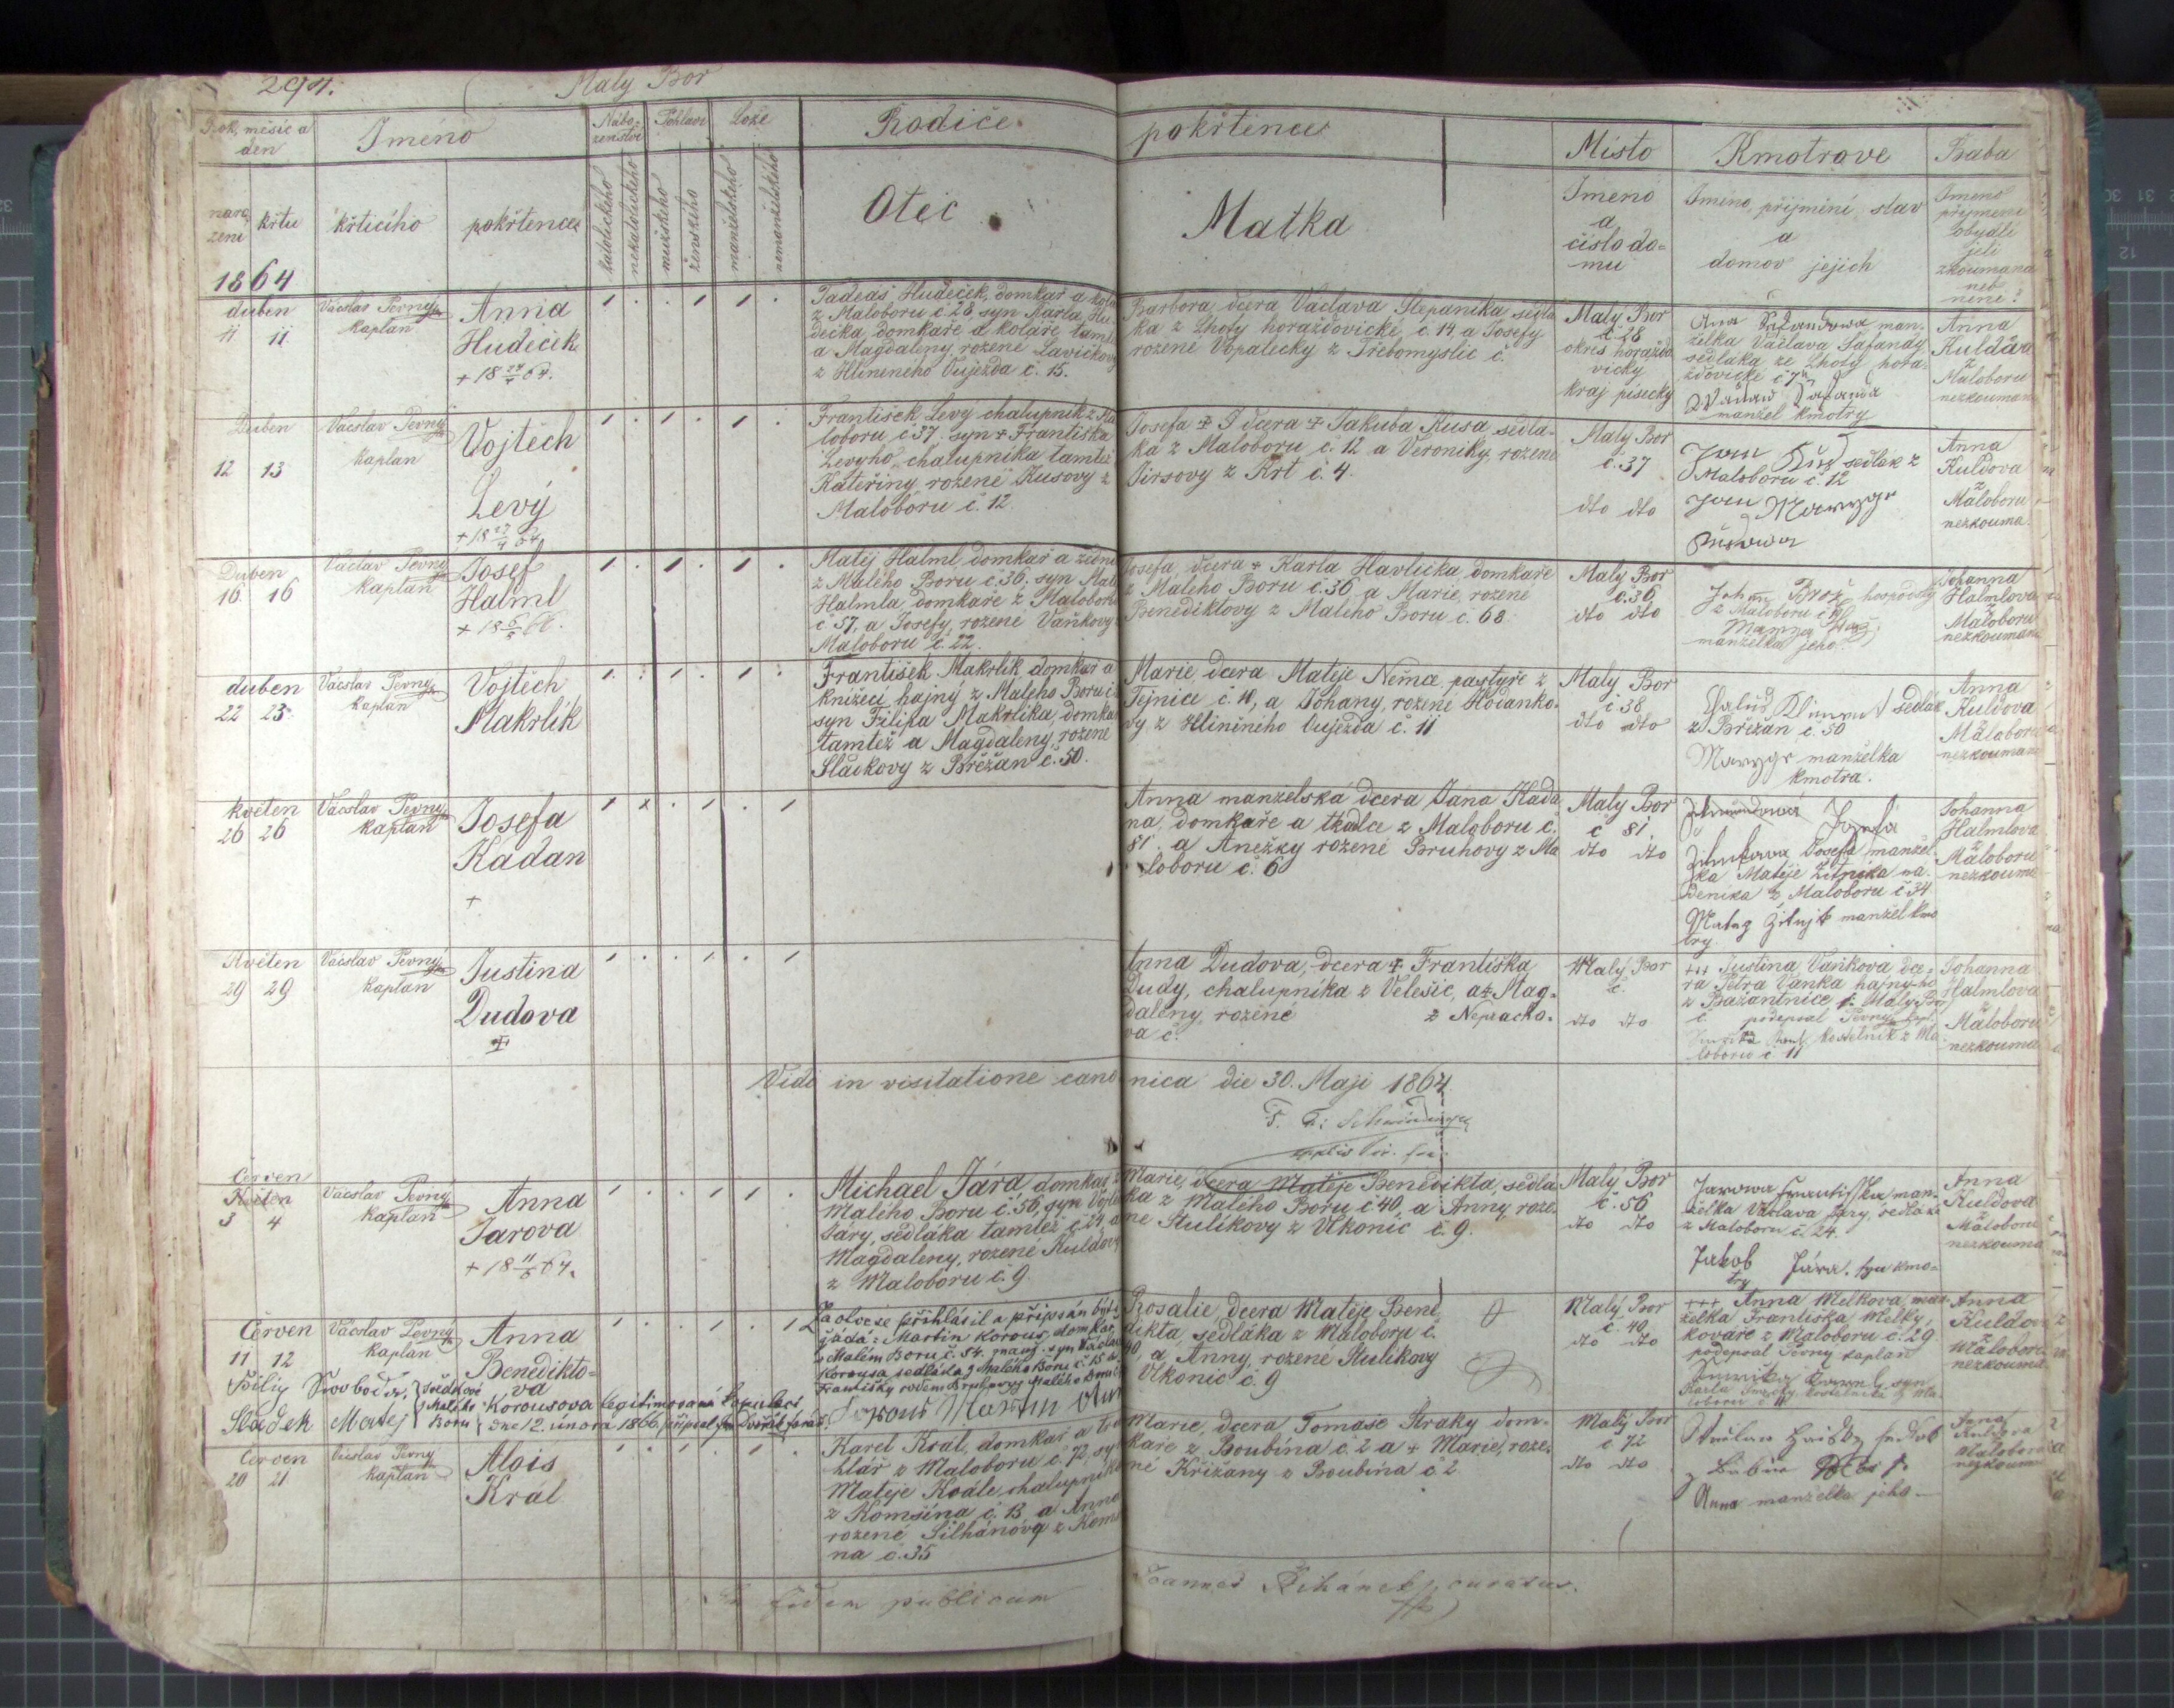 294.
Malý Bor
Rok, měsíc a den
Jméno
Nábo-
ženství
Pohlaví
Lože
Rodiče
pokřtěnce
Místo
Kmotrové
Baba
naro-
zení
křtu
křtícího
pokřtěnce
katolického
nekatolického
mužského
ženského
manželského
nemanželského
Otec
Matka
Jmeno
a
číslo do-
mu
Jméno, příjmění, stav
a
domov jejich
Jmeno
přijmení
obydlí
jeli
zkoumana
neb
neni?
1864
duben
11 11
Václav Pevný
kaplan
Anna
Hudeček
+ 18 64.
Tadeáš Hudeček, domkař a kolář
z Maloboru č. 28, syn Karla Hu-
dečka, domkaře a koláře tamtéž
a Magdaleny rozené Lavičkovy
z Hliněného Vujezda č. 15.
Barbora, dcera Václava Štěpanika sedlá-
ka z Lhoty horažďovické č. 14 a Josefy
rozené Vopalecky z Třebomyslic č.
Malý Bor
č 28
okres horaždo
vický
kraj písecký
Ana man-
želka Václava Šafandy
sedláka ze Lhoty hora-
žďovické č 7
manžel kmotry
Anna
Kuldova
z
Maloboru
nezkoumana
Duben
12 13
Václav Pevný
kaplan
Vojtěch
Levý
František Levý chalupník z Ma
loboru č 37 syn + Františka
Levyho, chalupníka tamtéž
Kateřiny rozené Kusovy z
Maloboru č. 12.
Josefa + dcera + Jakuba Kusa sedla-
ka z Maloboru č. 12 a Veroniky, rozené
Pirsovy z Krt č. 4.
Malý Bor
č. 37
dto dto
Jan Kus sedlák z
Maloboru č. 12
Anna
Kuldova
z
Maloboru
nezkouma.
Duben
16. 16
Václav Pevný
kaplan
Josef
Halml
Matěj Halml, domkař a zedni
z Malého Boru č. 36, syn Matě
Halmla, domkaře z Maloboru
č 57, a Josefy, rozené Vaňkovy
Maloboru č. 22.
Josefa, dcera + Karla Havlíčka, domkaře
z Malého Boru č. 36, a Marie, rozené
Benediktovy z Malého Boru č. 68
Malý Bor
č. 36
dto dto
Brož hospodský
z Maloboru
manželka jeho
Johanna
Halmlova
z
Maloboru
nezkoumana
duben
22 23
Václav Pevný
kaplan
Vojtěch
Makrlík
František Makrlík domkař a
knížecí hajný z Malého Boru č
syn Filipa Makrlíka, domkař
tamtéž a Magdaleny, rozené
Sládkovy z Břežan č. 50.
Marie, dcera Matěje Němca, pastýře z
Tejnice č. 10, a Johany, rozené Hodanko-
vy z Hliněného Vujezda č. 11
Malý Bor
č 38
dto dto
sedlák
z Břežan č. 50
manželka
kmotra.
Anna
Kuldova
z
Maloboru
nezkoumana
květen
26 26
Václav Pevný
kaplan
Josefa
Kadan
+
Anna manželská dcera Jana Kada
na, domkaře a tkalce z Maloboru č.
81. a Anežky rozené Bruhovy z Ma
loboru č. 6
Malý Bor
č 81
dto dto
Josefa
Josefa manžel-
ka Matěje Žitníka ná-
deníka z Maloboru č 34
manžel kmo
try
Johanna
Halmlova
z
Maloboru
nezkouma
Květen
29 29
Václav Pevný
kaplan
Justina
Dudova
+
Anna Dudova, dcera + Františka
Dudy, chalupníka z Velešic, a + Mag-
daleny rozené z Nepracho-
va č.
Malý Bor
č.
dto dto
+++ Justina Vaňkova dce-
ra Petra Vaňka hajného
z Bažantnice Malý Bor
podepsal Pevný kapl.
kostelník z Ma
loboru č 11
Johanna
Halmlova
z
Maloboru
nezkouma
Vidi in visitatione canonica die 30. Maji 1864.
Červen
Květen
3 4
Václav Pevný
kaplan
Anna
Jarova
+ 18 11/6 64.
Michael Jára domkař z
Malého Boru č. 56, syn Vojtě
Járy, sedláka tamtéž č. 24 a
Magdaleny, rozené Kuldovy
z Maloboru č. 9
Marie, dcera Matěje Benedikta, sedlá
ka z Malého Boru č 40, a Anny, roze-
né Stulíkovy z Vlkonic č. 9.
Malý Bor
č. 56
dto dto
Jarowa Frantisska man-
želka Václava Járy, sedláka
z Maloboru č. 24.
Jakob Jára. syn kmo-
try
Anna
Kuldova
z
Maloboru
nezkouma
Červen
11 12
Václav Pevný
kaplan
Anna
Benedikto-
va
Korousova legitimovaná
Filip Svoboda,
Sladek Matěj
svědkové
z Malého
Boru
dne 12. února 1866, připsal Jan Dvořák farář.
Za otce se přihlásil a připsán býti
žádá: Martin Korous, domkař
v Malém Boru č. 54. manž. syn Václava
Korousa sedláka z Malého Boru č. 15 a
Františky rodem Bruhovy z Malého Boru
Korous Martin otec
Rosalie, dcera Matěje Bene
dikta, sedláka z Maloboru č.
40, a Anny, rozené Stulíkovy
Vlkonic č. 9
Malý Bor
č. 40
dto dto
+++ Anna Melkova, man-
želka Františka Melky,
kováře z Maloboru č. 29
podepsal Pevný kaplan
syn
Karla kostelníka z Ma-
loboru č. 11
Anna
Kuldova
z
Maloboru
nezkouma
Červen
20 21
Václav Pevný
kaplan
Alois
Král
Karel Král, domkař a tru
hlář z Maloboru č. 72, syn
Matěje Krále, chalupníka
z Komšína č. 13, a Anna
rozené Šilhánovy z Komš
na č. 35
Marie, dcera Tomáše Straky dom-
kaře z Boubína č. 2 a + Marie, roze-
né Křížany z Boubína č 2
Malý Bor
č 72
dto dto
Anna manželka jeho
Anna
Kuldova
Maloboru
nezkouma
In fidem publicam
Joannes Řihánek, curatus.